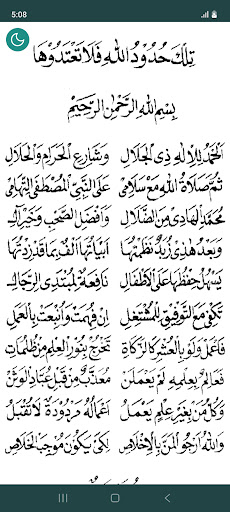 5:08
تِلْكَ حُدُوْدُ اللهِ فَلَا تَعْتَدُوْهَا
بِسْمِ اللهِ الرَّحْمٰنِ الرَّحِيْمِ
اَلْحَمْدُ لِلْاِلٰهِ ذِي الْجَلَالِ وَشَارِعِ الْحَرَامِ وَالْحَلَالِ
ثُمَّ صَلَاةُ اللهِ مَعْ سَلَامِيْ عَلَى النَّبِيِّ الْمُصْطَفَى التِّهَامِيْ
مُحَمَّدِ الْهَادِيْ مِنَ الضَّلَالِ وَاَفْضَلِ الصَّحْبِ وَخَيْرِ اٰلِ
وَبَعْدُ هٰذِيْ زُبَدٌ نَظَمْتُهَا اَبْيَاتُهَا اَلْفٌ بِمَا قَدْ زِدْتُهَا
يَسْهُلُ حِفْظُهَا عَلَى الْاَطْفَالِ نَافِعَةٌ لِمُبْتَدِي الرِّجَالِ
تَكْفِيْ مَعَ التَّوْفِيْقِ لِلْمُشْتَغِلِ اِنْ فُهِمَتْ وَاُتْبِعَتْ بِالْعَمَلِ
فَاعْمَلْ وَلَوْ بِالْعُشْرِ كَالزَّكَاةِ تَخْرُجْ بِنُوْرِ الْعِلْمِ مِنْ ظُلُمَاتِ
فَعَالِمٌ بِعِلْمِهِ لَمْ يَعْمَلَنْ مُعَذَّبٌ مِنْ قَبْلِ عُبَّادِ الْوَثَنْ
وَكُلُّ مَنْ بِغَيْرِ عِلْمٍ يَعْمَلُ اَعْمَالُهُ مَرْدُوْدَةٌ لَا تُقْبَلُ
وَاللهَ اَرْجُو الْمَنَّ بِالْاِخْلَاصِ لِكَيْ يَكُوْنَ مُوْجِبَ الْخَلَاصِ